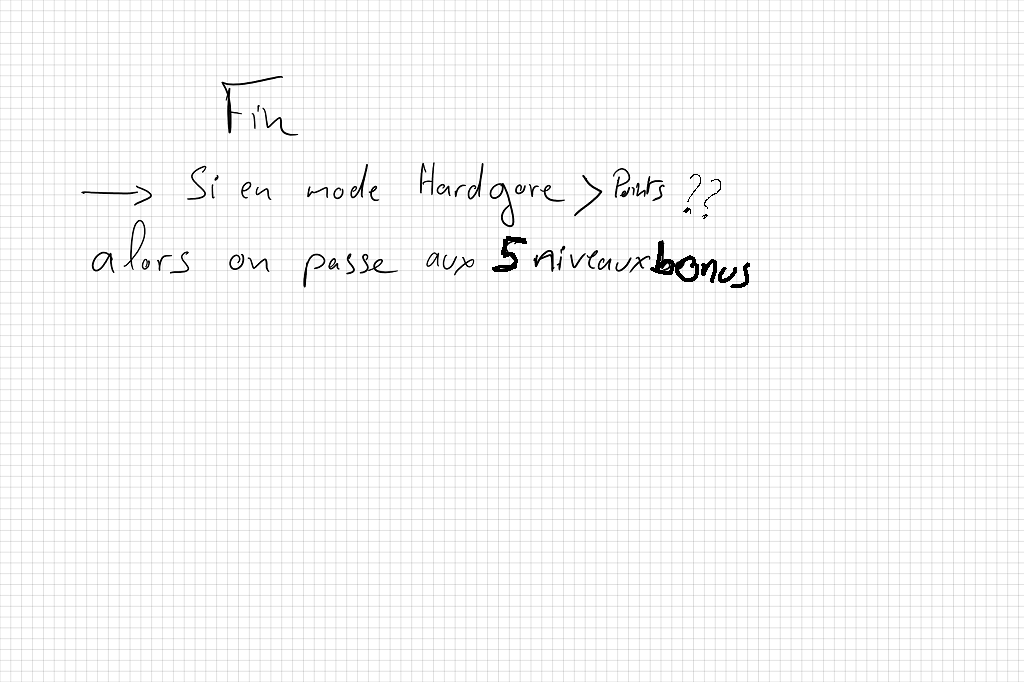 Fin
→ Si en mode Hardgore > Points ??
alors on passe aux 5 niveaux bonus